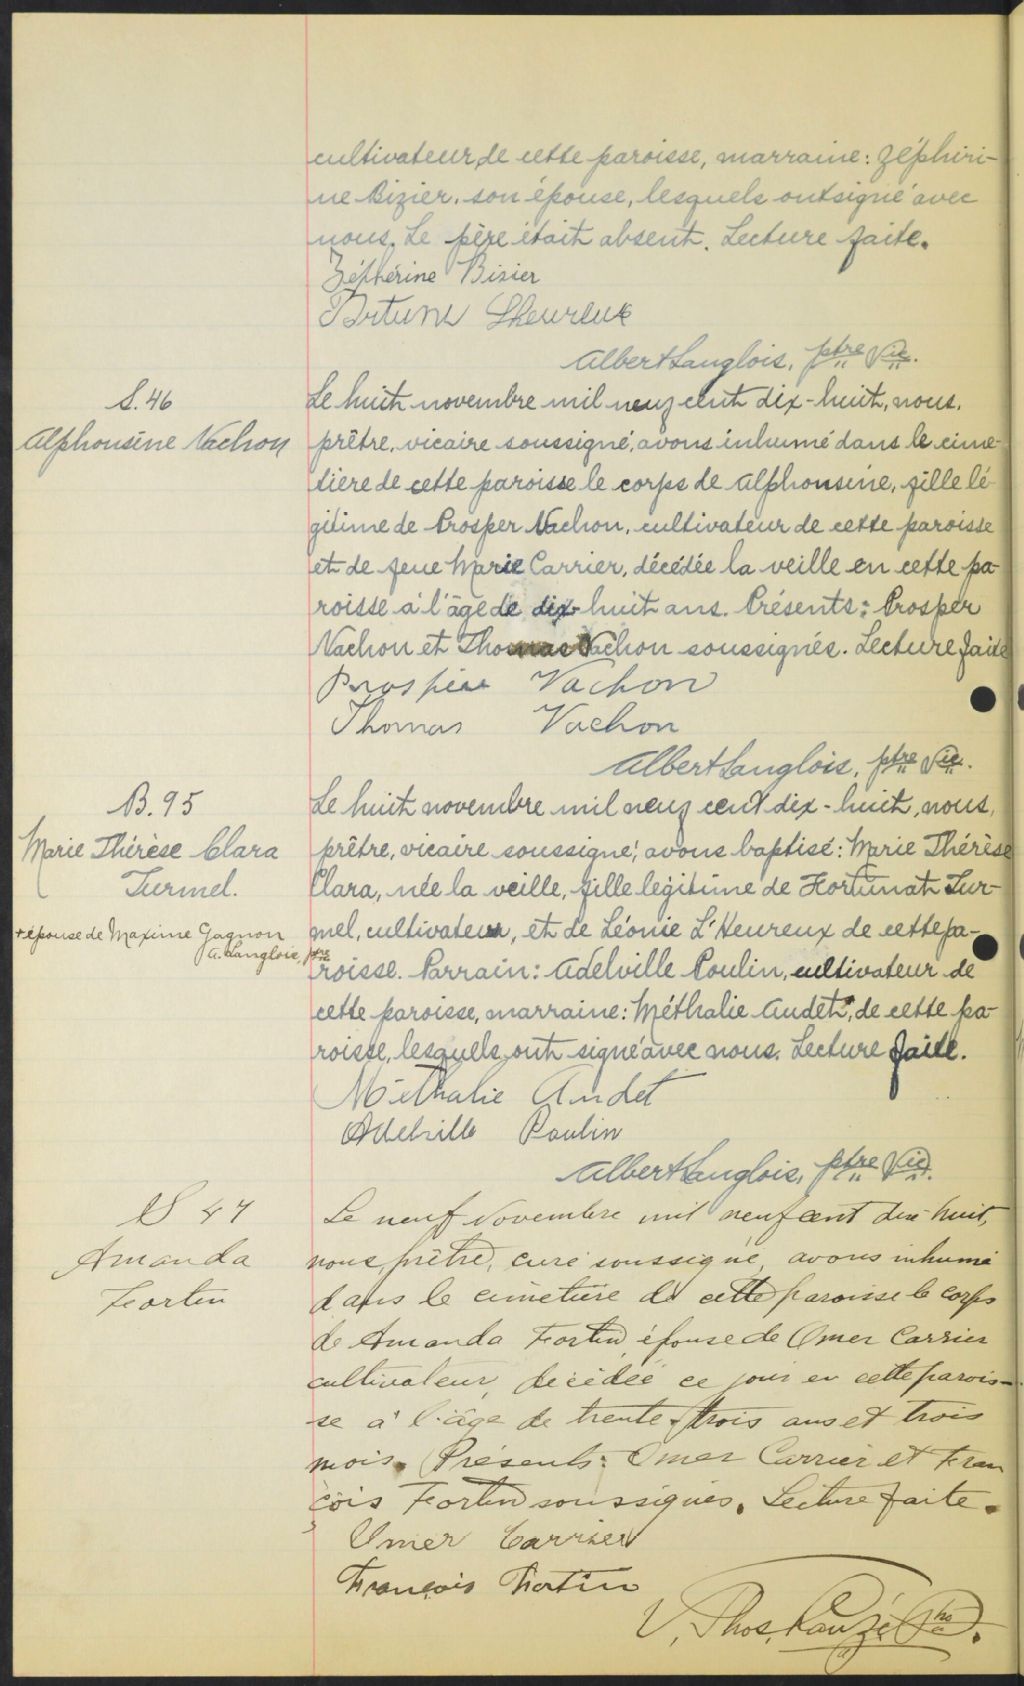 cultivateur, de cette paroisse, marraine: Zéphiri-
ne Bizier, son épouse, lesquels ont signé avec
nous. Le père était absent. Lecture faite.
Zéphérine Bisier
Fortuna Lheureux
Albert Langlois, ptre Vic.
S. 46
Alphonsine Vachon
Le huit novembre mil neuf cent dix-huit, nous,
prêtre, vicaire soussigné, avons inhumé dans le cime-
tière de cette paroisse le corps de Alphonsine, fille lé-
gitime de Prosper Vachon, cultivateur de cette paroisse
et de feue Marie Carrier, décédée la veille en cette pa-
roisse à l'âge de dix-huit ans. Présents: Prosper
Vachon et Thomas Vachon soussignés. Lecture faite
Prosper Vachon
Thomas Vachon
Albert Langlois, ptre Vic.
B. 95
Marie Thérèse Clara
Turmel.
+ épouse de Maxime Gagnon
A. Langlois, ptre
Le huit novembre mil neuf cent dix-huit, nous,
prêtre, vicaire soussigné, avons baptisé: Marie Thérèse
Clara, née la veille, fille légitime de Fortunat Tur-
mel, cultivateur, et de Léonie L'Heureux de cette pa-
roisse. Parrain: Adelville Poulin, cultivateur de
cette paroisse, marraine: Méthalie Audet, de cette pa-
roisse, lesquels ont signé avec nous. Lecture faite.
Méthalie Audet
Adelville Poulin
Albert Langlois, ptre Vic.
S 47
Amanda
Fortin
Le neuf Novembre mil neuf cent dix-huit,
nous, prêtre, curé soussigné, avons inhumé
dans le cimetière de cette paroisse le corps
de Amanda Fortin, épouse de Omer Carrier
cultivateur, décédée ce jour en cette parois-
se à l'âge de trente-trois ans et trois
mois. Présents: Omer Carrier et Fran
çois Fortin soussignés. Lecture faite.
Omer Carrier
François Fortin
V. Thos. Rouzé